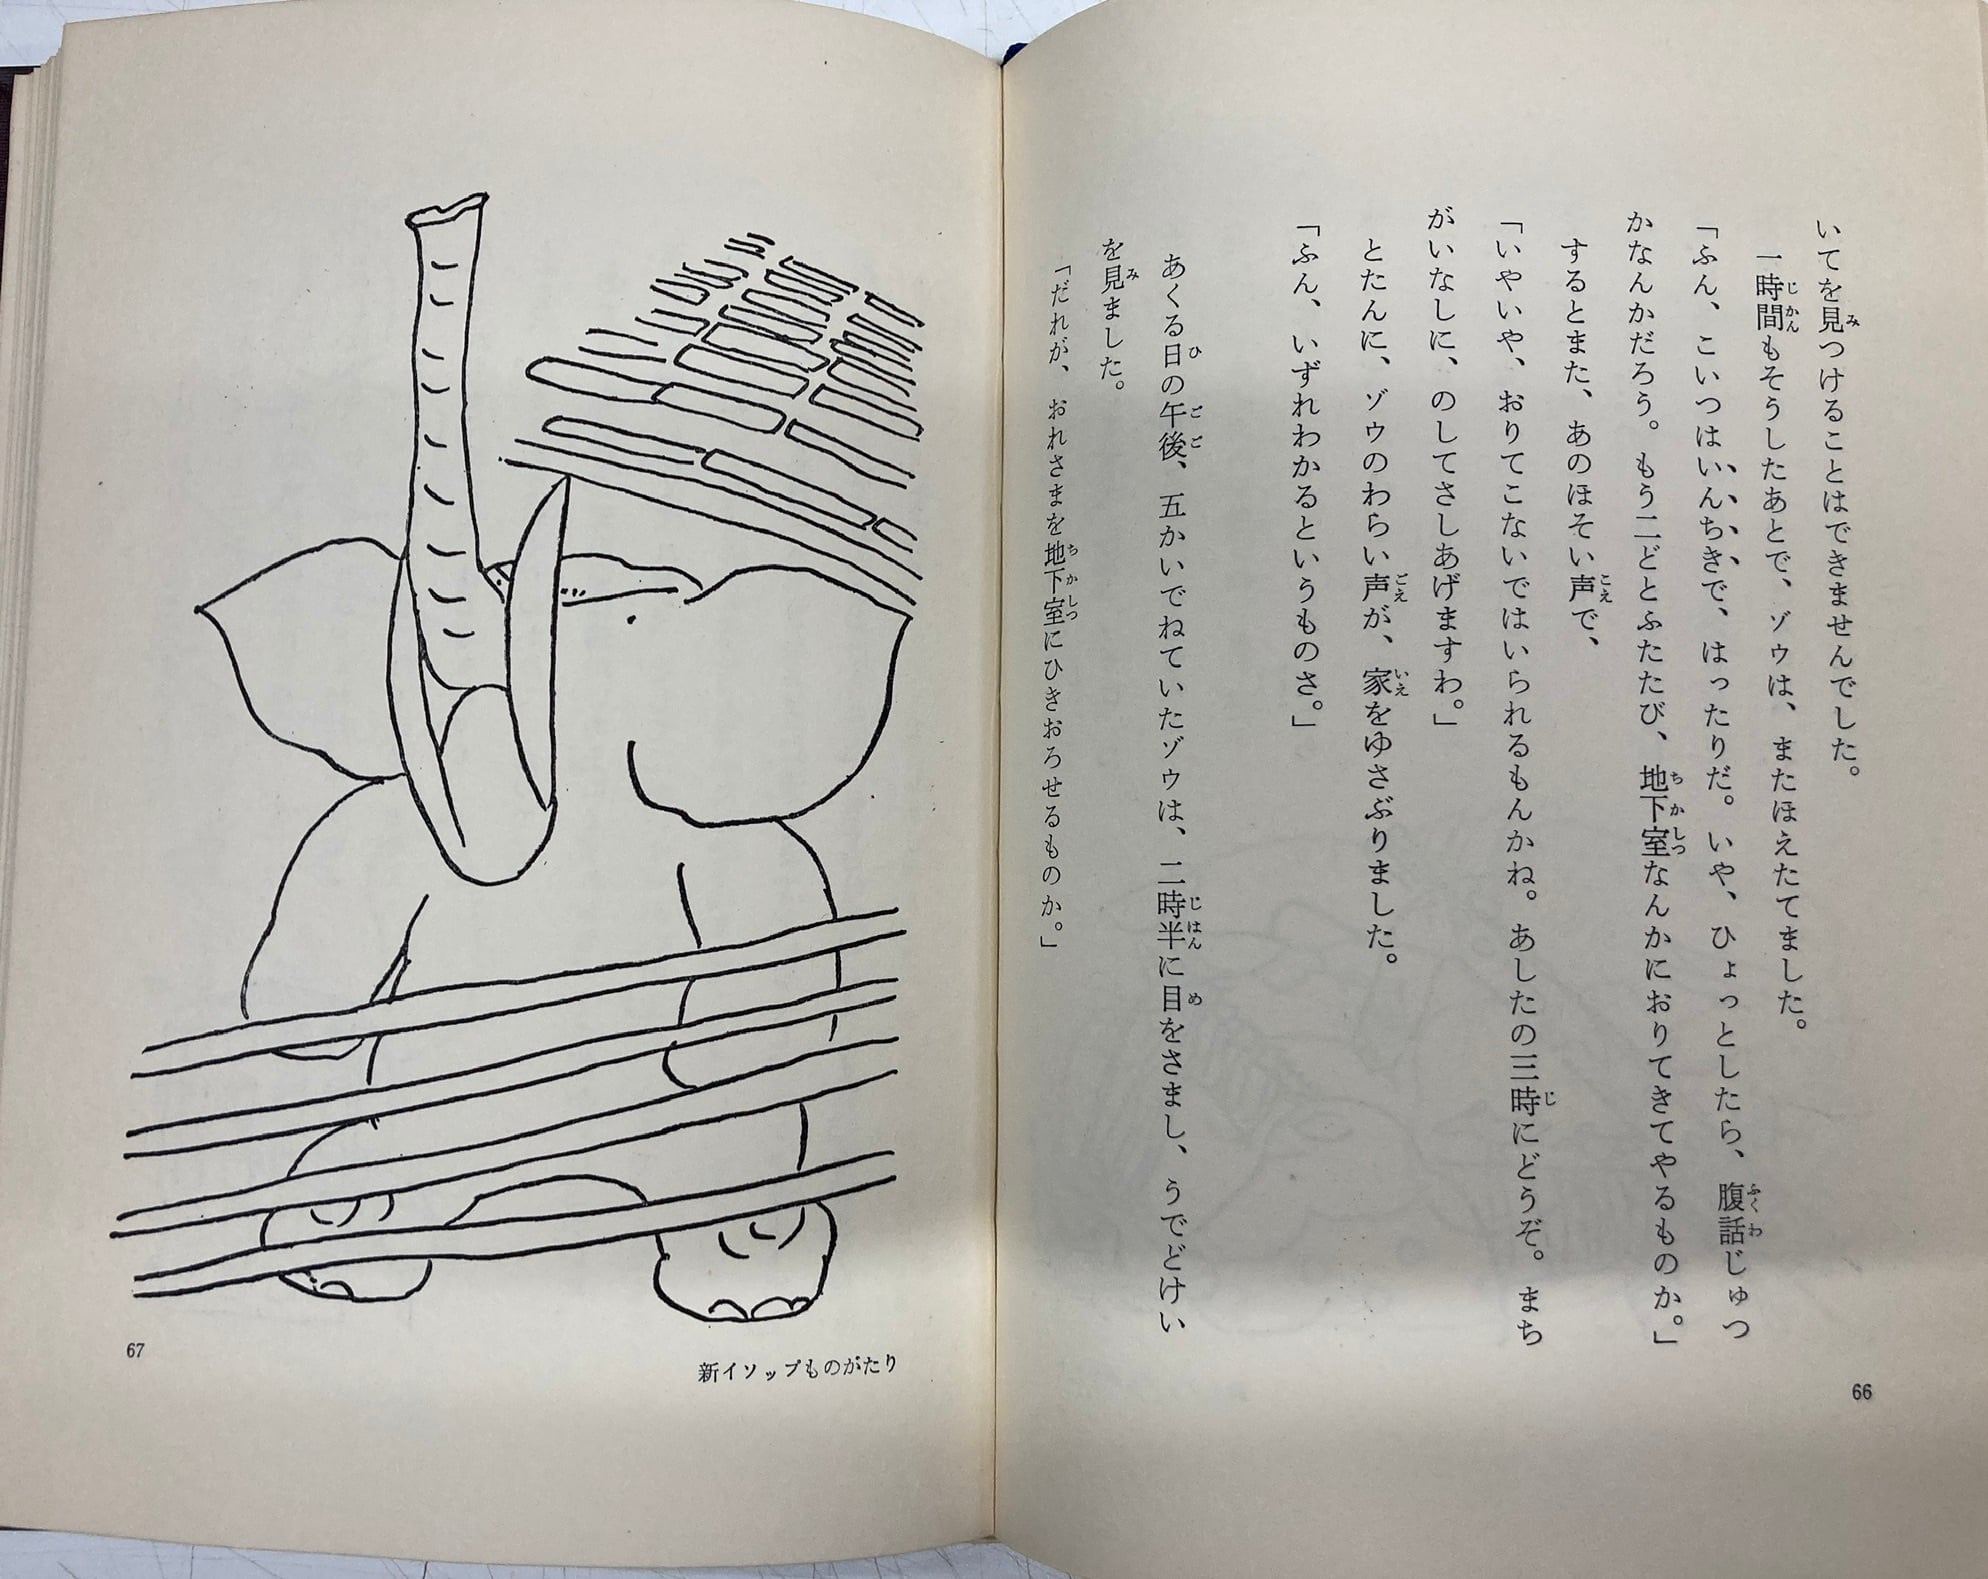 いてを見つけることはできませんでした。
一時間もそうしたあとで、ゾウは、またほえたてました。
「ふん、こいつはいんちきで、はったりだ。いや、ひょっとしたら、腹話じゅつ
かなんかだろう。もう二どとふたたび、地下室なんかにおりてきてやるものか。」
するとまた、あのほそい声で、
「いやいや、おりてこないではいられるもんかね。あしたの三時にどうぞ。まち
がいなしに、のしてさしあげますわ。」
とたんに、ゾウのわらい声が、家をゆさぶりました。
「ふん、いずれわかるというものさ。」
あくる日の午後、五かいでねていたゾウは、二時半に目をさまし、うでどけい
を見ました。
「だれが、おれさまを地下室にひきおろせるものか。」
66
新イソップものがたり
67